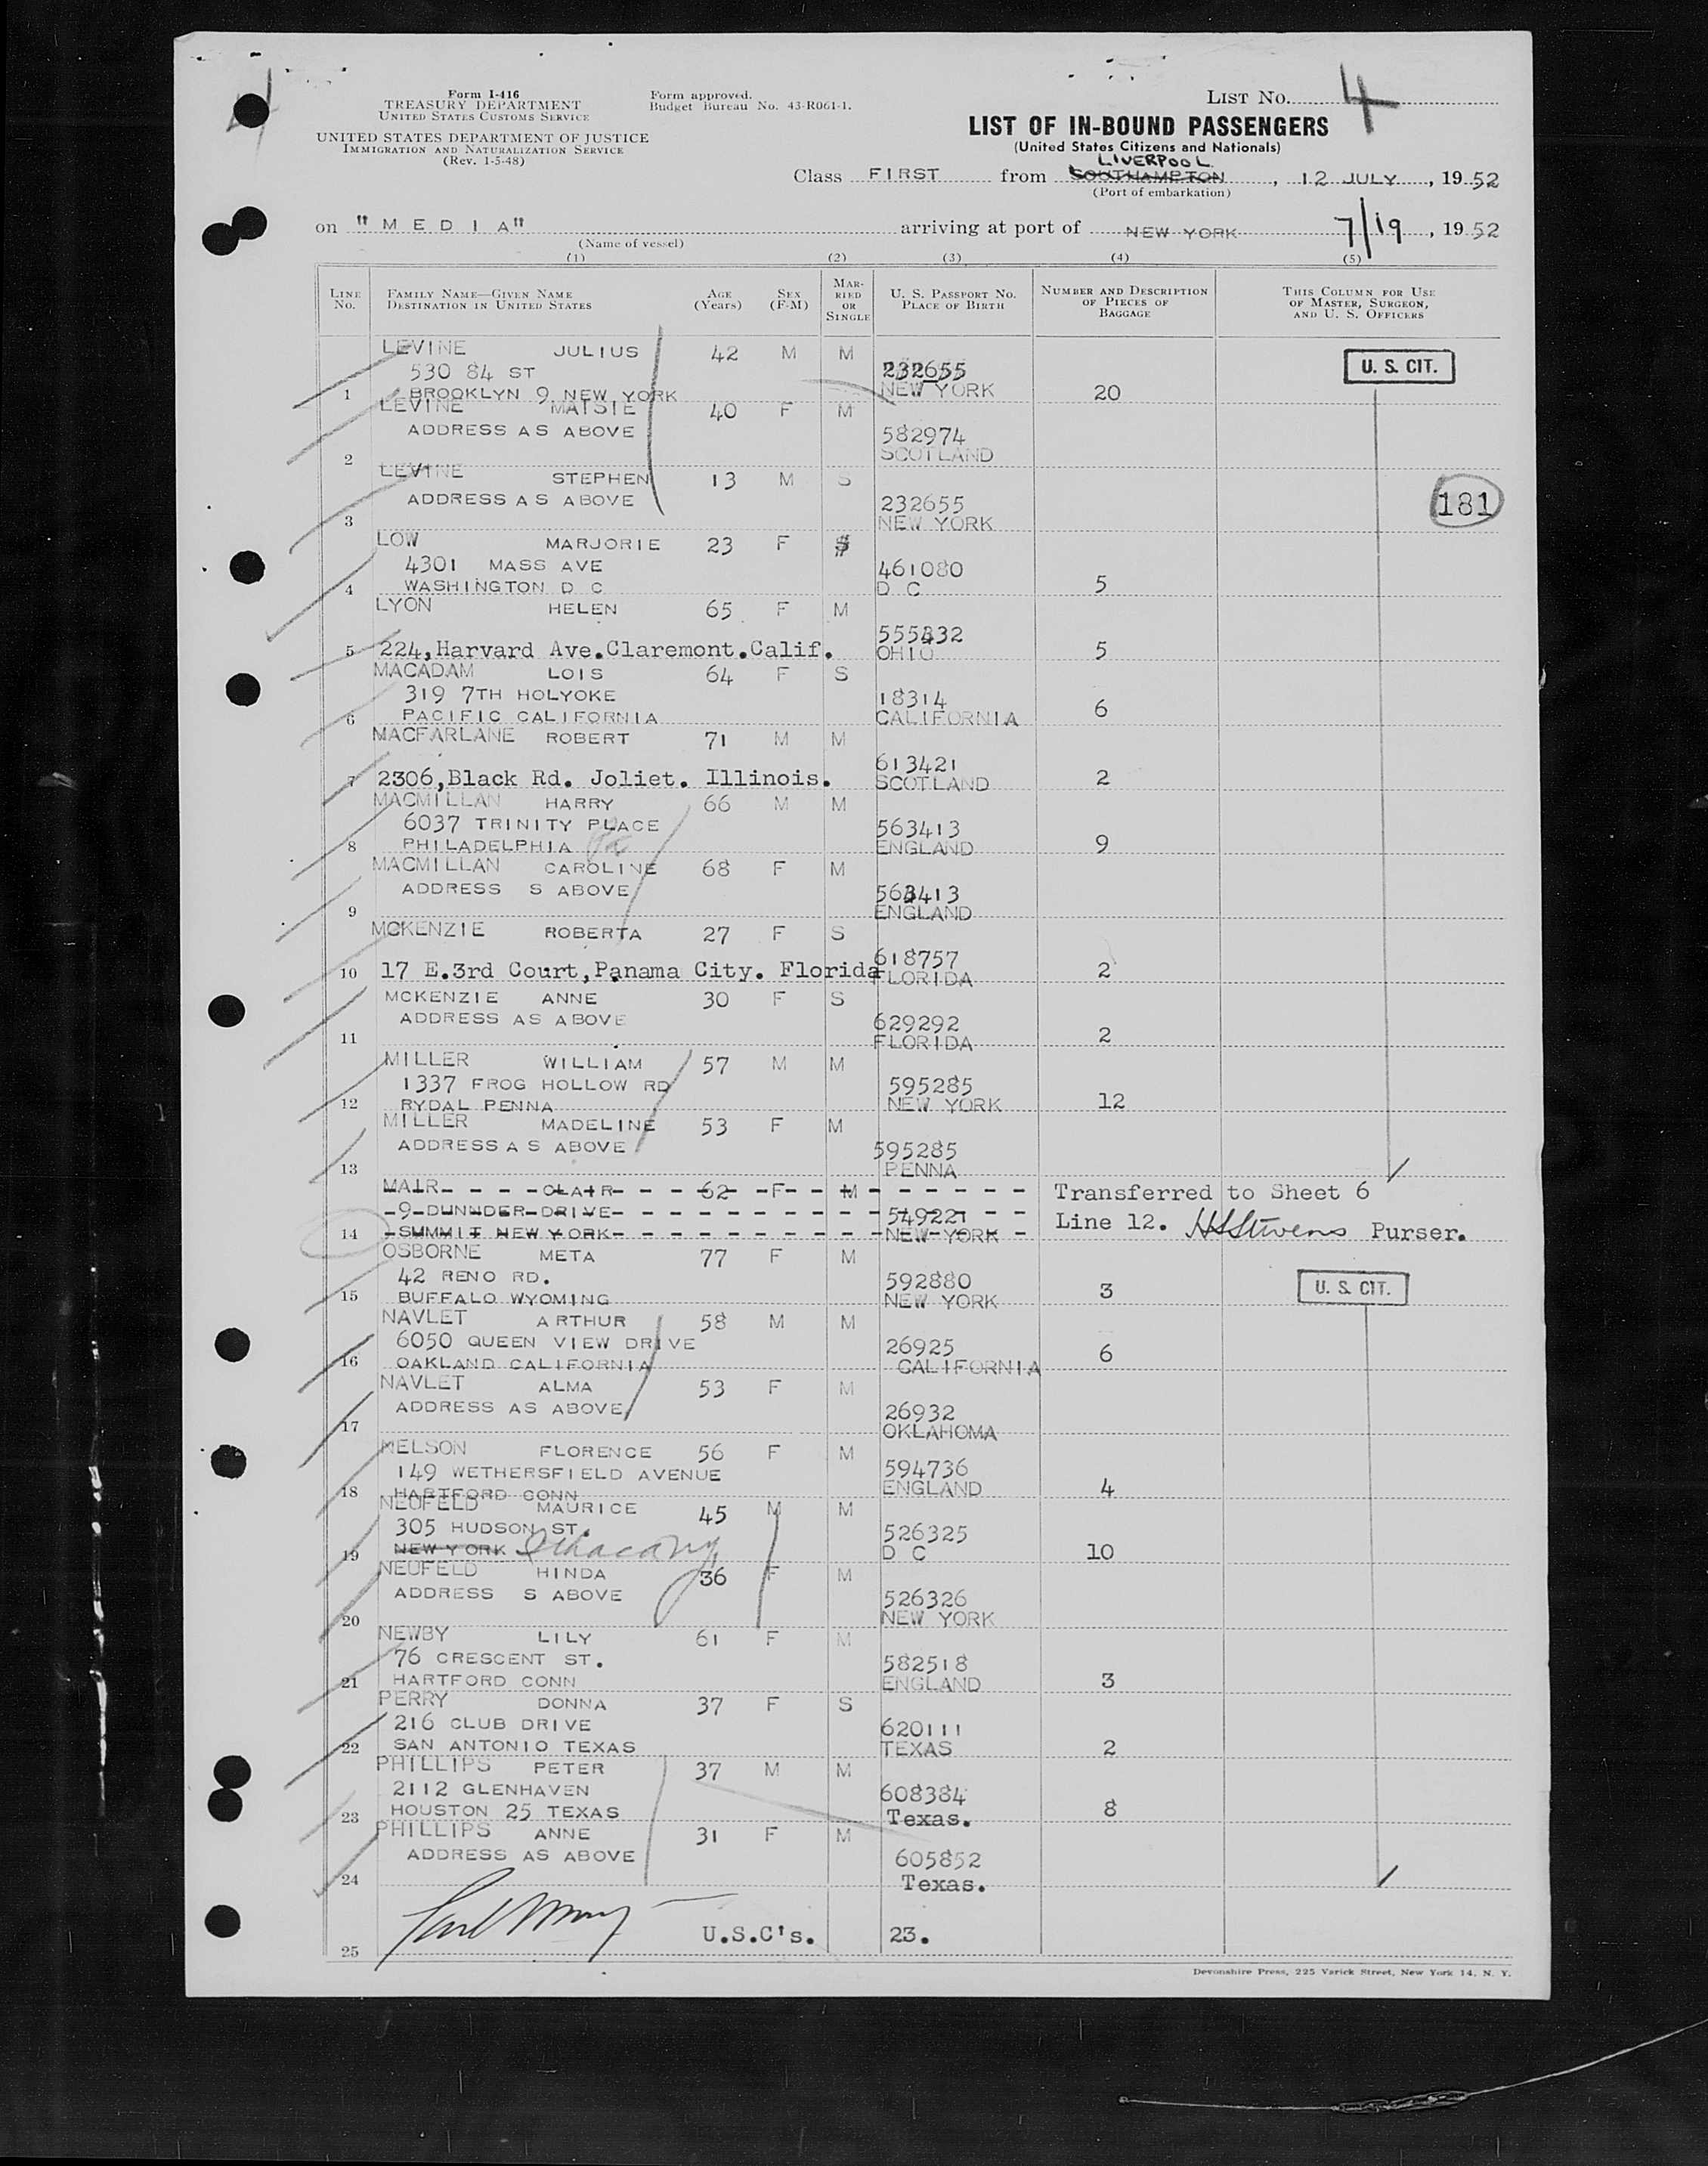 Form I-416
TREASURY DEPARTMENT
UNITED STATES CUSTOMS SERVICE
UNITED STATES DEPARTMENT OF JUSTICE
IMMIGRATION AND NATURALIZATION SERVICE
(Rev. 1-5-48)
Form approved.
Budget Bureau No. 43-R061-1.
LIST No. 4
LIST OF IN-BOUND PASSENGERS
(United States Citizens and Nationals)
LIVERPOOL
Class FIRST from SOUTHAMPTON, 12 JULY, 1952
(Port of embarkation)
on "MEDIA" arriving at port of NEW YORK 7/19, 1952
(Name of vessel)
(1) (2) (3) (4) (5)
LINE No. FAMILY NAME—GIVEN NAME DESTINATION IN UNITED STATES AGE (Years) SEX (F-M) MARRIED OR SINGLE U. S. PASSPORT No. PLACE OF BIRTH NUMBER AND DESCRIPTION OF PIECES OF BAGGAGE THIS COLUMN FOR USE OF MASTER, SURGEON, AND U. S. OFFICERS
LEVINE JULIUS 42 M M U. S. CIT.
530 84 ST 232655
1 BROOKLYN 9 NEW YORK NEW YORK 20
LEVINE MAISIE 40 F M
ADDRESS AS ABOVE 582974
2 SCOTLAND
LEVINE STEPHEN 13 M S
ADDRESS AS ABOVE 232655 181
3 NEW YORK
LOW MARJORIE 23 F S
4301 MASS AVE 461080
4 WASHINGTON D C D C 5
LYON HELEN 65 F M
555432
5 224,Harvard Ave.Claremont.Calif. OHIO 5
MACADAM LOIS 64 F S
319 7TH HOLYOKE 18314
6 PACIFIC CALIFORNIA CALIFORNIA 6
MACFARLANE ROBERT 71 M M
613421
7 2306,Black Rd. Joliet. Illinois. SCOTLAND 2
MACMILLAN HARRY 66 M M
6037 TRINITY PLACE 563413
8 PHILADELPHIA Pa ENGLAND 9
MACMILLAN CAROLINE 68 F M
ADDRESS S ABOVE 563413
9 ENGLAND
MCKENZIE ROBERTA 27 F S
618757
10 17 E.3rd Court,Panama City. Florida FLORIDA 2
MCKENZIE ANNE 30 F S
ADDRESS AS ABOVE 629292
11 FLORIDA 2
MILLER WILLIAM 57 M M
1337 FROG HOLLOW RD 595285
12 RYDAL PENNA NEW YORK 12
MILLER MADELINE 53 F M
ADDRESS AS ABOVE 595285
13 PENNA
MAIR CLAIR 62 F M Transferred to Sheet 6
9 DUNNDER DRIVE 549221 Line 12. HSStivens Purser.
14 SUMMIT NEW YORK NEW YORK
OSBORNE META 77 F M
42 RENO RD. 592880 U. S. CIT.
15 BUFFALO WYOMING NEW YORK 3
NAVLET ARTHUR 58 M M
6050 QUEEN VIEW DRIVE 26925
16 OAKLAND CALIFORNIA CALIFORNIA 6
NAVLET ALMA 53 F M
ADDRESS AS ABOVE 26932
17 OKLAHOMA
NELSON FLORENCE 56 F M
149 WETHERSFIELD AVENUE 594736
18 HARTFORD CONN ENGLAND 4
NEUFELD MAURICE 45 M M
305 HUDSON ST. 526325
19 NEW YORK Ithaca NY D C 10
NEUFELD HINDA 36 F M
ADDRESS S ABOVE 526326
20 NEW YORK
NEWBY LILY 61 F M
76 CRESCENT ST. 582518
21 HARTFORD CONN ENGLAND 3
PERRY DONNA 37 F S
216 CLUB DRIVE 620111
22 SAN ANTONIO TEXAS TEXAS 2
PHILLIPS PETER 37 M M
2112 GLENHAVEN 608384
23 HOUSTON 25 TEXAS Texas. 8
PHILLIPS ANNE 31 F M
ADDRESS AS ABOVE 605852
24 Texas.
25 U.S.C's. 23.
Devonshire Press, 225 Varick Street, New York 14, N. Y.